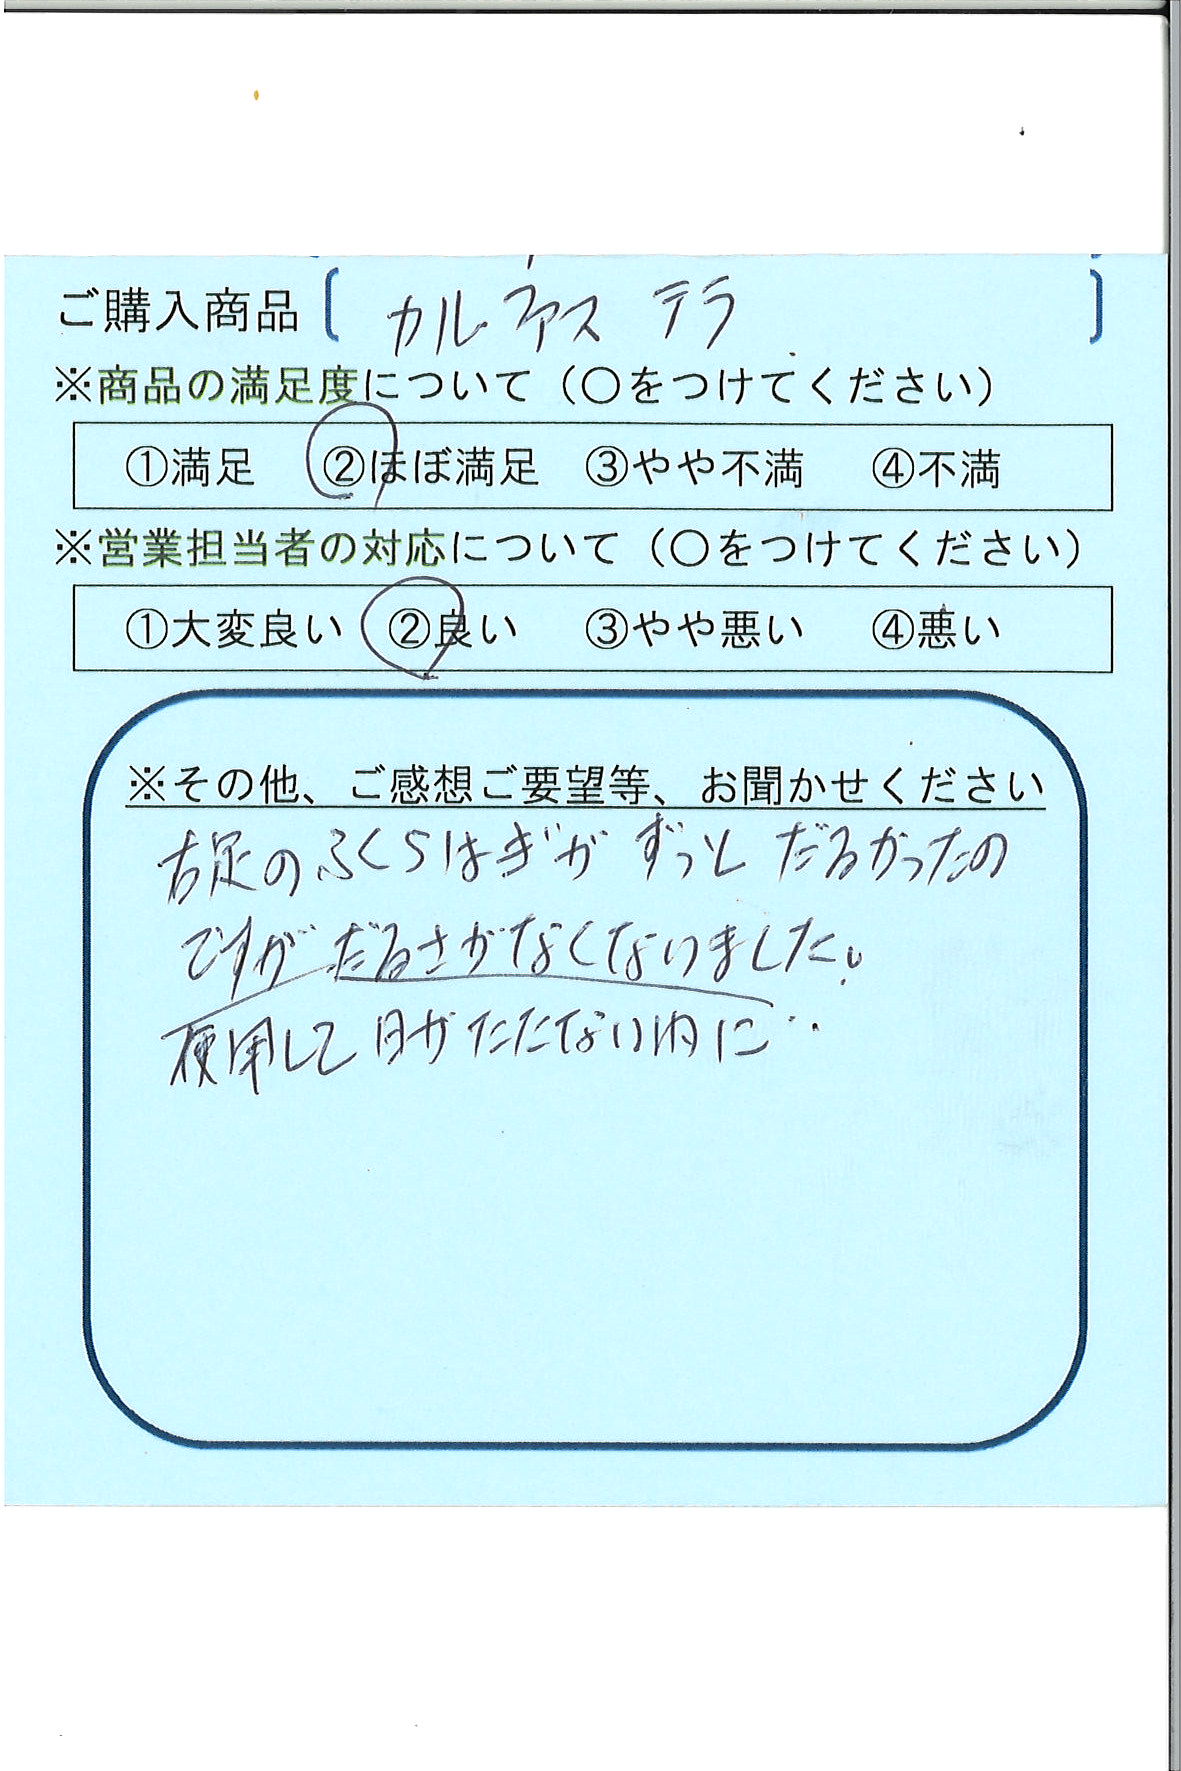 ご購入商品 [ カルファス テラ ]
※商品の満足度について（○をつけてください）
①満足 ②ほぼ満足 ③やや不満 ④不満
※営業担当者の対応について（○をつけてください）
①大変良い ②良い ③やや悪い ④悪い
※その他、ご感想ご要望等、お聞かせください
右足のふくらはぎが ずっと だるかったの
ですが だるさがなくなりました。
使用して日がたたない内に‥